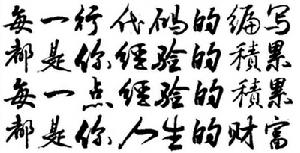 每一行代码的编写
都是你经验的積累
每一点经验的積累
都是你人生的财富